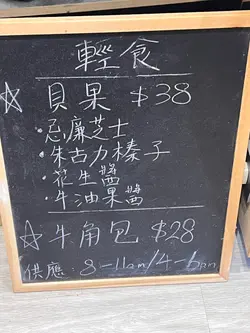 輕食
☆貝果 $38
·忌廉芝士
·朱古力榛子
·花生醬
·牛油果醬
☆牛角包 $28
供應: 8-11am/4-6pm